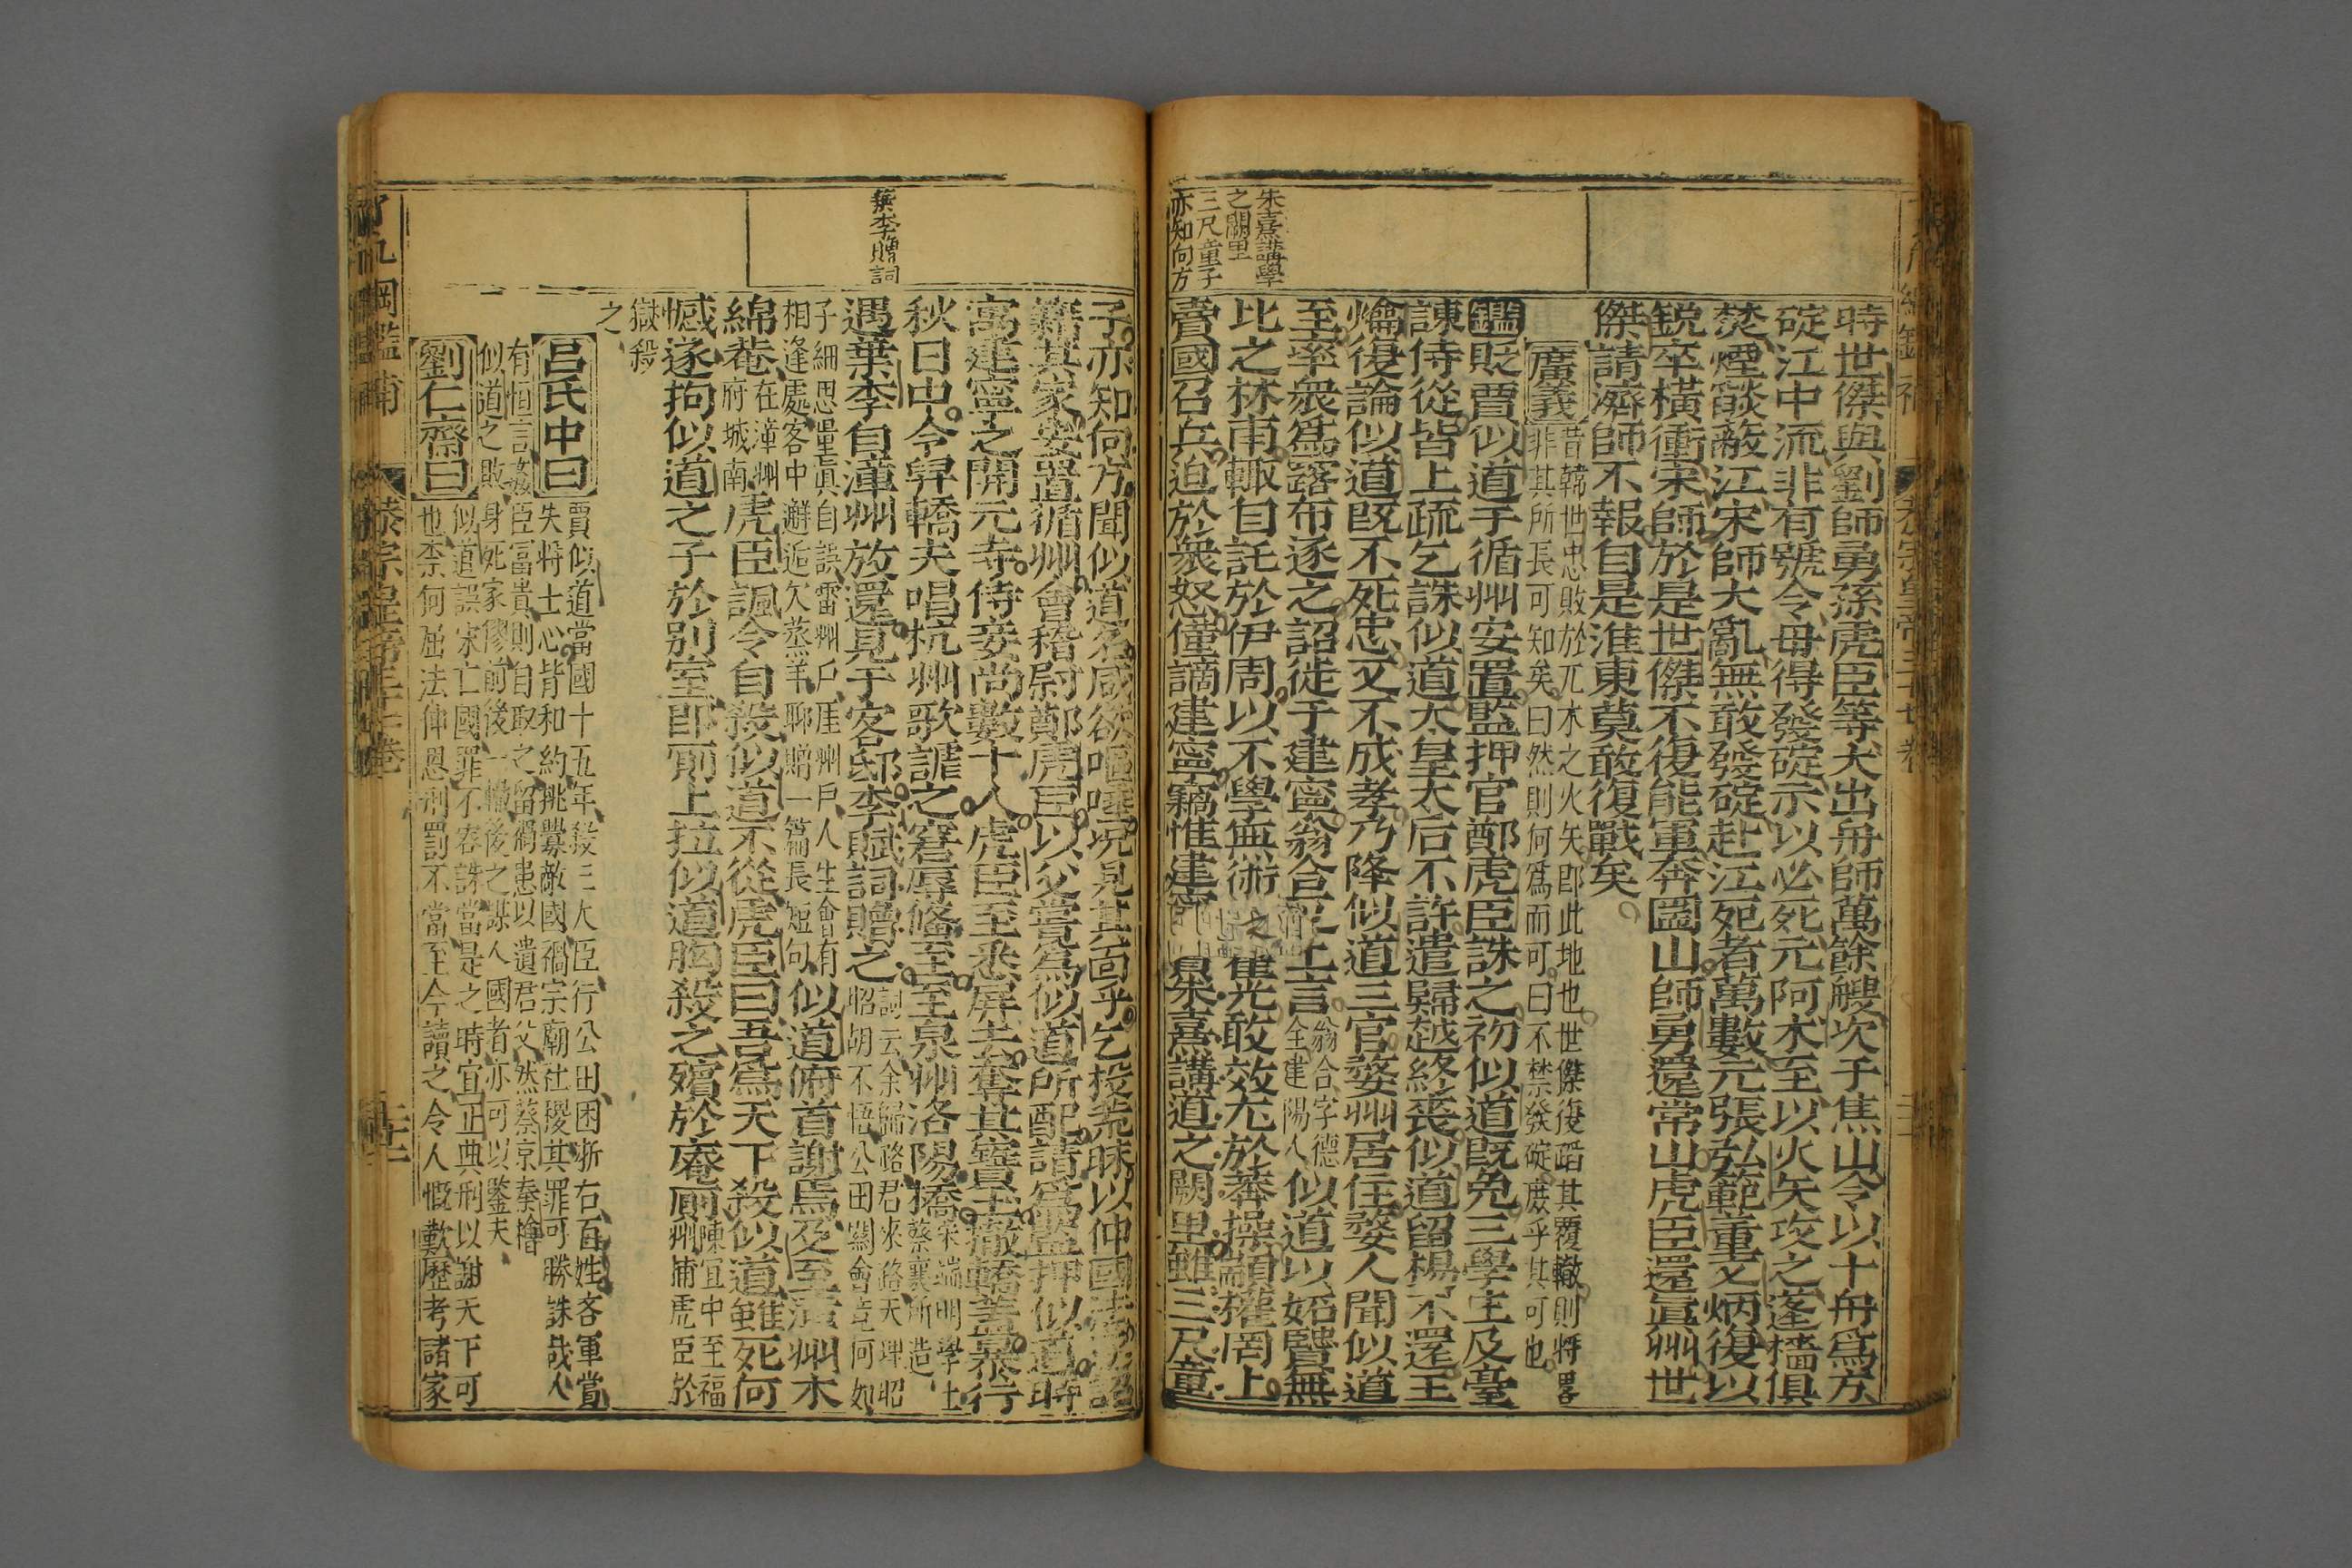 時世傑與劉師勇孫虎臣等大出舟師萬餘艘次于焦山令以十舟爲方
碇江中流非有號令毋得發碇示以必死元阿术至以火矢攻之蓬檣俱
焚煙燄蔽江宋師大亂無敢發碇赴江死者萬數元張弘範董文炳復以
銳卒橫衝宋師於是世傑不復能軍奔圌山師勇還常山虎臣還眞州世
傑請濟師不報自是淮東莫敢復戰矣
廣義
昔韓世忠敗於兀术之火矢即此地也世傑復蹈其覆轍則將畧
非其所長可知矣曰然則何爲而可曰不禁發碇庶乎其可也
鑑貶賈似道于循州安置監押官鄭虎臣誅之初似道既免三學生及臺
諫侍從皆上疏乞誅似道太皇太后不許遣歸越終喪似道留楊不還王
爚復論似道既不死忠又不成孝乃降似道三官婺州居住婺人聞似道
至率衆爲露布逐之詔徙于建寧翁合上言
翁合字德
全建陽人
似道以妬賢無
比之林甫輙自託於伊周以不學無術之霍光敢效尤於莽操顓權罔上
賣國召兵迫於衆怒僅謫建寧竊惟建寧朱熹講道之闕里雖三尺童
朱熹講學
之闕里
三尺童子
亦知向方
子亦知向方聞似道名咸欲嘔唾况見其面乎乞投荒昧以伸國法詔
籍其家安置循州會稽尉鄭虎臣以父嘗爲似道所配請爲監押似道時
寓建寧之開元寺侍妾尚數十人虎臣至悉屏去奪其寶玉撤轎蓋暴行
秋日中令舁轎夫唱杭州歌謔之窘辱僃至至泉州洛陽橋
宋端明學士
蔡襄所造
遇葉李自漳州放還見于客邸李賦詞贈之
詞云余歸路君來路天理昭
昭胡不悟公田關會竟何如
子細思量眞自誤雷州戶厓州戶人生會有
相逢處客中邂逅欠蒸羊聊贈一篇長短句
似道俯首謝焉及至漳州木
綿菴
在漳州
府城南
虎臣諷令自殺似道不從虎臣曰吾爲天下殺似道雖死何
憾遂拘似道之子於別室即厠上拉似道胸殺之殯於庵厠
陳宜中至福
州捕虎臣於
獄殺
之
葉李贈詞
呂氏中曰
賈似道當國十五年殺三大臣行公田困浙右百姓吝軍賞
失將士心背和約挑釁敵國禍宗廟社稷其罪可勝誅哉人
有恒言姦臣富貴則自取之留禍患以遺君父然蔡京秦檜
似道之敗身死家僇前後一轍後之謀人國者亦可以鑒夫
劉仁齋曰
似道誤宋亡國罪不容誅當是之時宜正典刑以謝天下可
也柰何屈法伸恩刑罰不當至今讀之令人慨歎歷考諸家
了凡綱鑑補
恭宗皇帝三十七卷